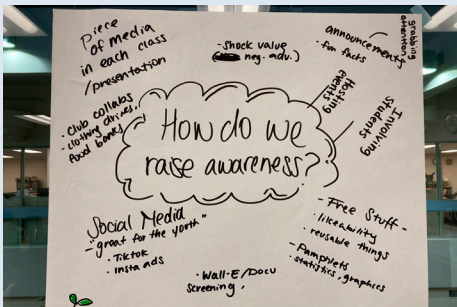 Piece
of media
in each class
/presentation
- Shock value
( neg. adv.)
announcements
• fun facts
grabbing
attention
Hosting
events
Involving
students
• Club collabs
• clothing drives,
food banks
How do we
raise awareness?
Social Media
- "great for the youth"
• Tiktok
• insta ads
• Wall-E/Docu
screening.
- Free Stuff -
• likeability
• reusable things
- Pamphlets
• statistics, graphics